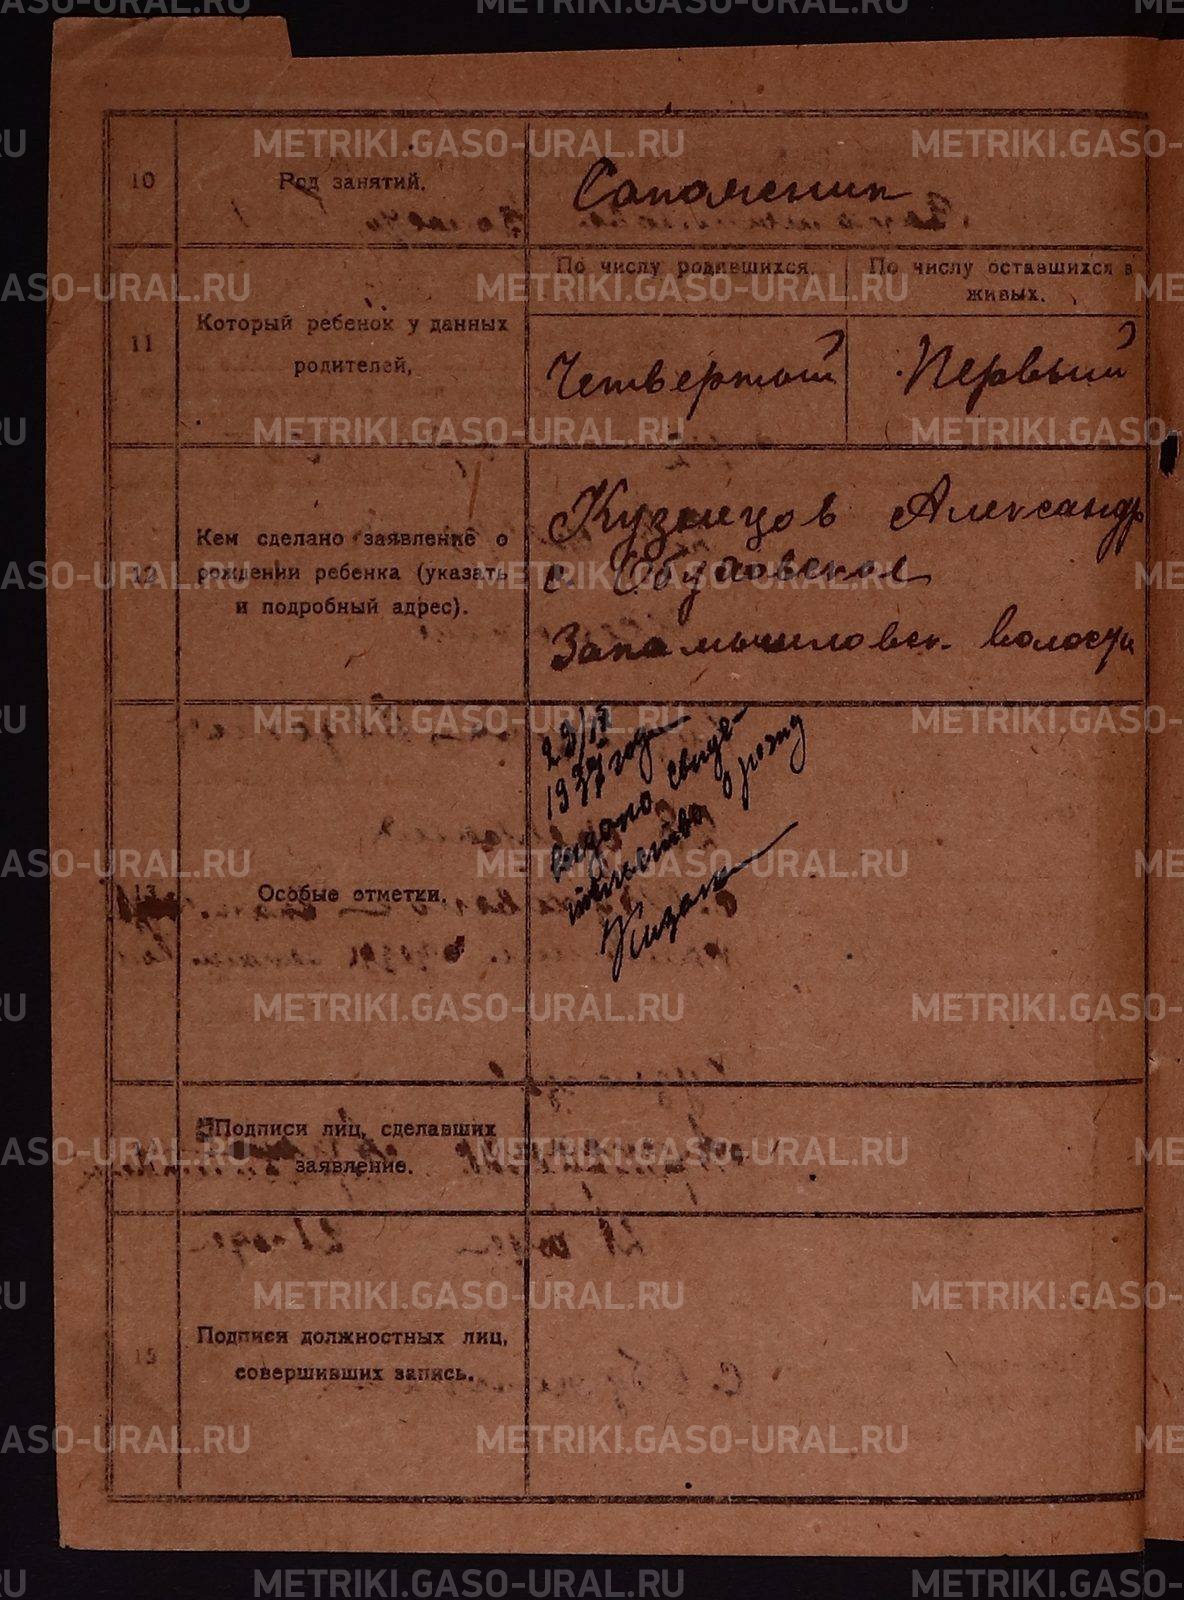 METRIKI.GASO-URAL.RU
10
Род занятий.
Сапожник
11
Который ребенок у данных
родителей.
По числу родившихся.
По числу оставшихся в
живых.
Четвертый
Первый
12
Кем сделано заявление о
рождении ребенка (указать
и подробный адрес).
Кузнецов Александр
с.
волости
13
Особые отметки.
1937 год
выдано свиде-
тельство о рожд
Подписи лиц, сделавших
заявление.
15
Подписи должностных лиц,
совершивших запись.